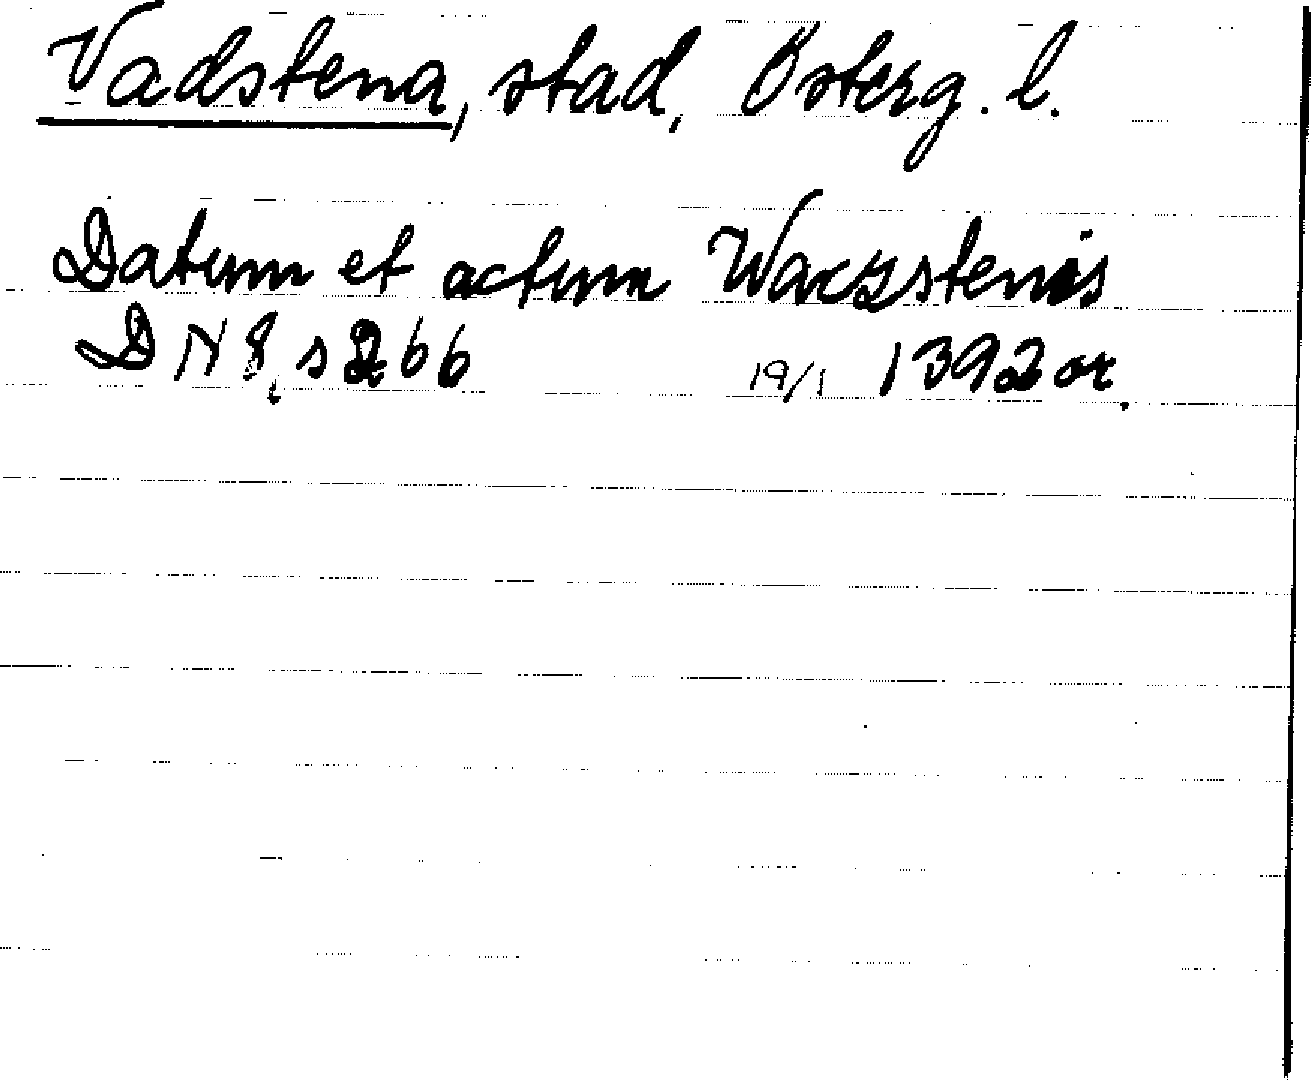 Vadstena, stad, Österg. l.
Datum et actum Waczstenis
DN 8, s 266 19/1 1392 or.